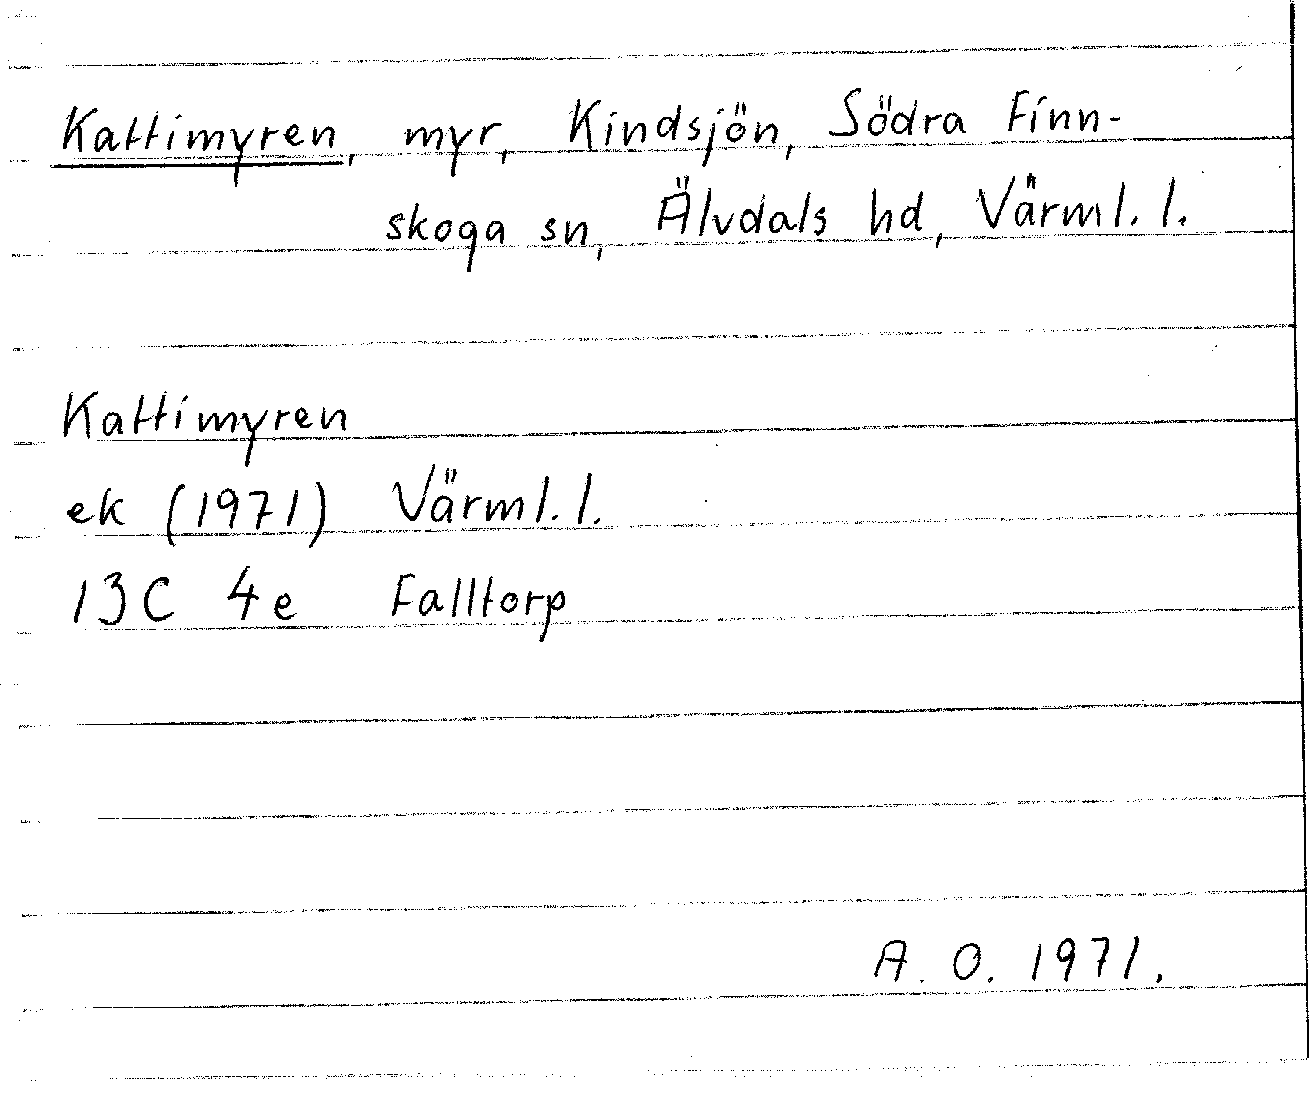 Kattimyren, myr, Kindsjön, Södra Finn-
skoga sn, Älvdals hd, Värml. l.
Kattimyren
ek (1971) Värml. l.
13C 4e Falltorp
A. O. 1971.